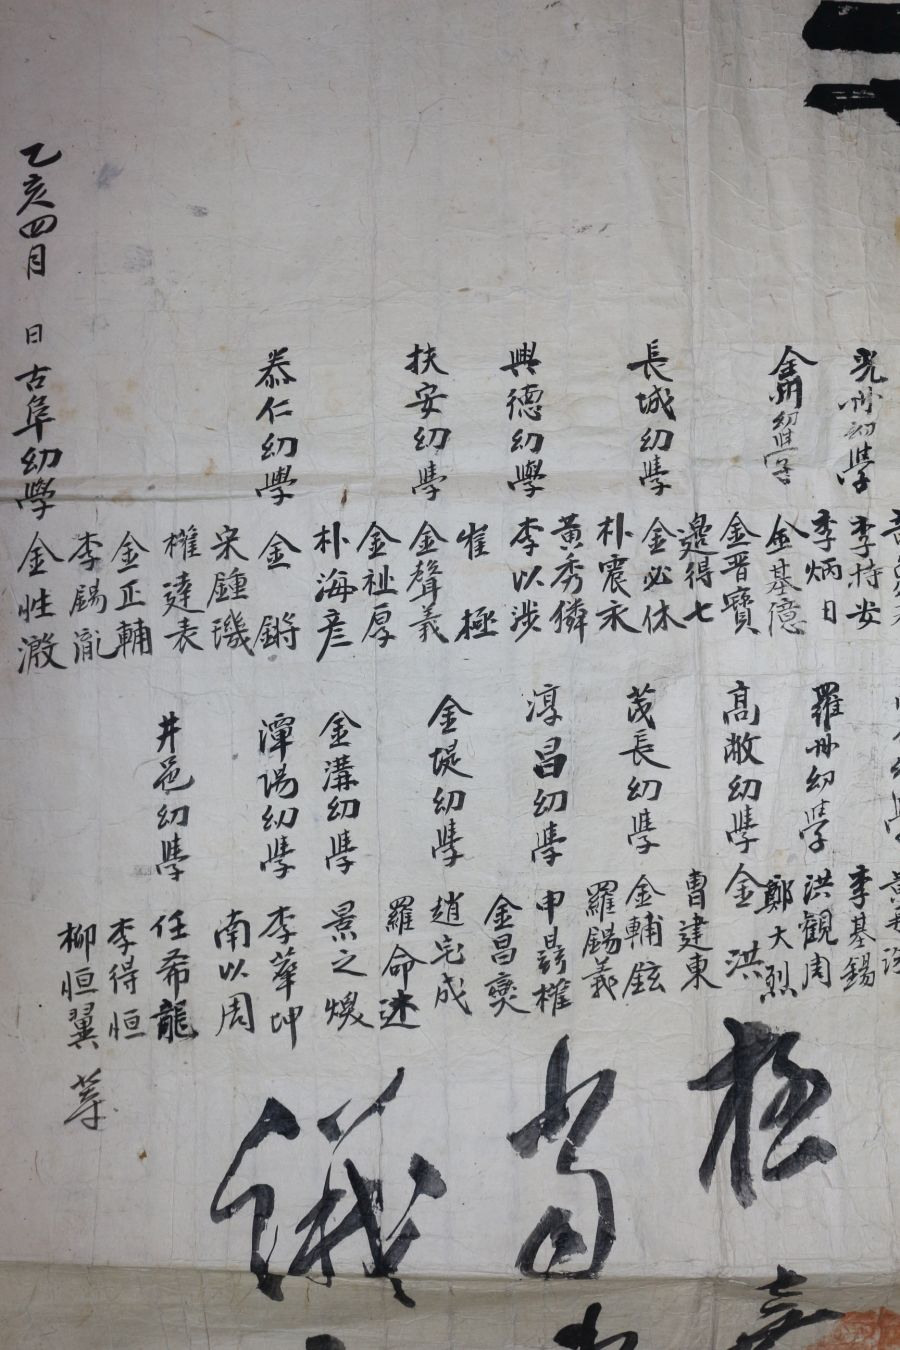 光州幼學
李持安
李炳日
金溝幼學
金基億
金晋寶
邊得七
長城幼學
金必休
朴震永
黃秀獜
興德幼學
李以涉
崔極
扶安幼學
金聲義
金祉厚
朴海彦
泰仁幼學
金鏘
宋鍾璣
權達表
金正輔
李錫胤
乙亥四月 日古阜幼學
金性激
李基錫
羅州幼學
洪觀周
鄭大烈
高敞幼學
金洪
曹建東
茂長幼學
金輔鉉
羅錫義
淳昌幼學
申權
金昌奕
金堤幼學
趙宅成
羅命述
金溝幼學
景之煥
潭陽幼學
李華坤
南以周
井邑幼學
任希龍
李得恒
柳恒翼 等
極
當
議